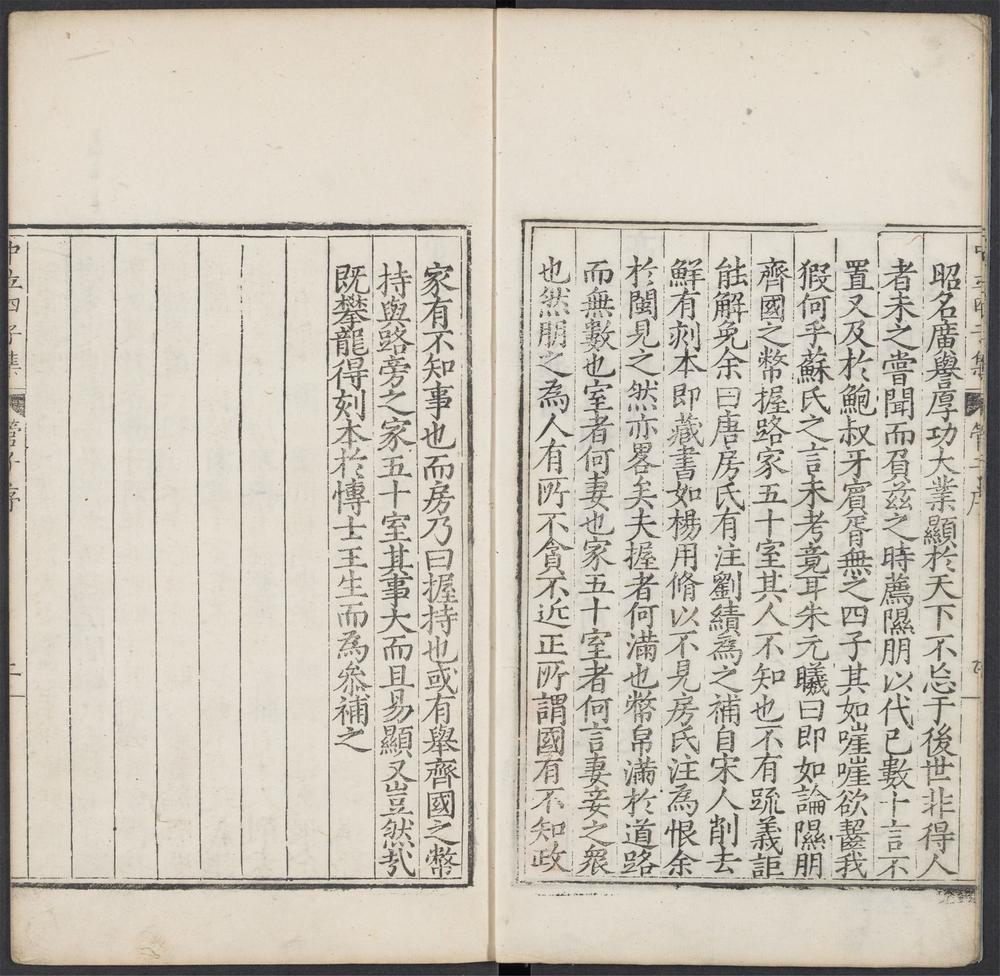 昭名廣譽厚功大業顯於天下不忘于後世非得人
者未之嘗聞而頁茲之時薦隰朋以代已數十言不
置又及於鮑叔牙賔胥無之四子其如啀啀欲齧我
猳何乎蘇氏之言未考竟耳朱元曦曰即如論隰朋
齊國之幣握路家五十室其人不知也不有䟽義詎
能解免余曰唐房氏有注劉績為之補自宋人削去
鮮有刻本即藏書如楊用脩以不見房氏注為恨余
於閩見之然亦畧矣夫握者何滿也幣帛滿於道路
而無數也室者何妻也家五十室者何言妻妾之衆
也然朋之為人有所不貪不近正所謂國有不知政
家有不知事也而房乃曰握持也或有舉齊國之幣
持與路旁之家五十室其事大而且易顯又豈然㢤
既攀龍得刻本於博士王生而為叅補之
中立四子集
管子序
二